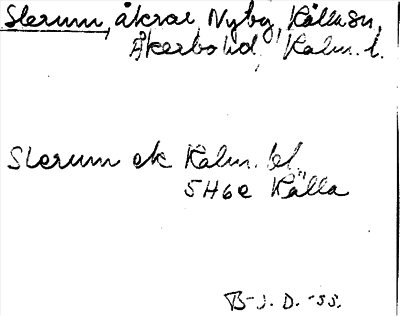 Slerum, åkrar, Nyby, Källa sn,
Åkerbo hd, Kalm. l.
Slerum ek Kalm. bl
5H6e Källa
B-J. D. -55.